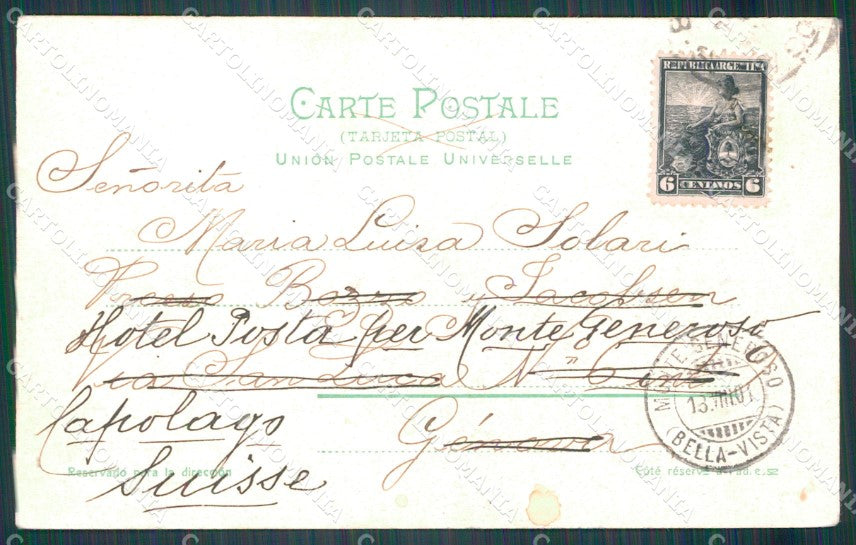 CARTE POSTALE
(TARJETA POSTAL)
UNIÓN POSTALE UNIVERSELLE
REPUBLICA ARGENTINA
6 CENTAVOS 6
Señorita
Maria Luisa Solari
Bozzo y Jacobsen
Hotel Posta per Monte Generoso
Via San Luca Nº
Capolago
Génova
Suisse
MONTE GENEROSO
13.VIII.01
(BELLA-VISTA)
Reservado para la dirección
Coté réservé à l'adresse
CARTOLINOMANIA